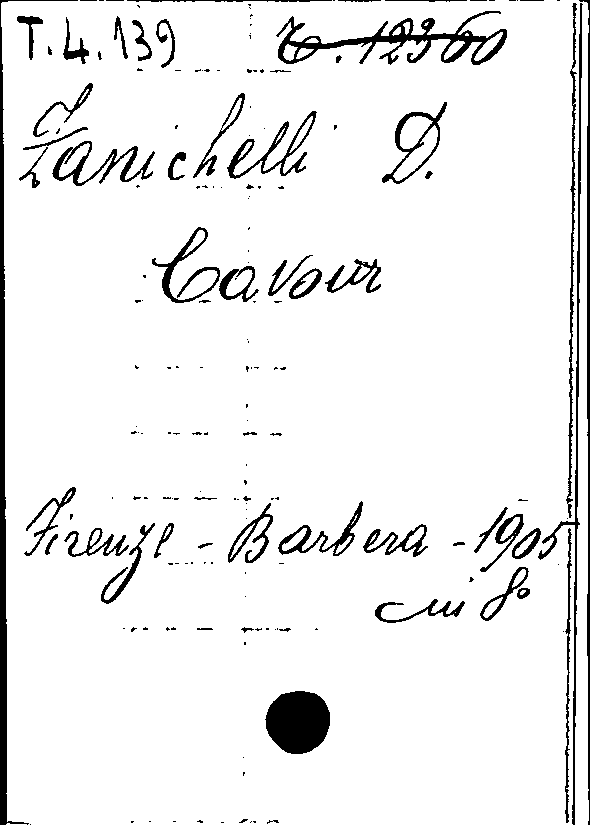 T.4.139 T.12360
Zanichelli D.
Cavour
Firenze - Barbera - 1905
in 8°